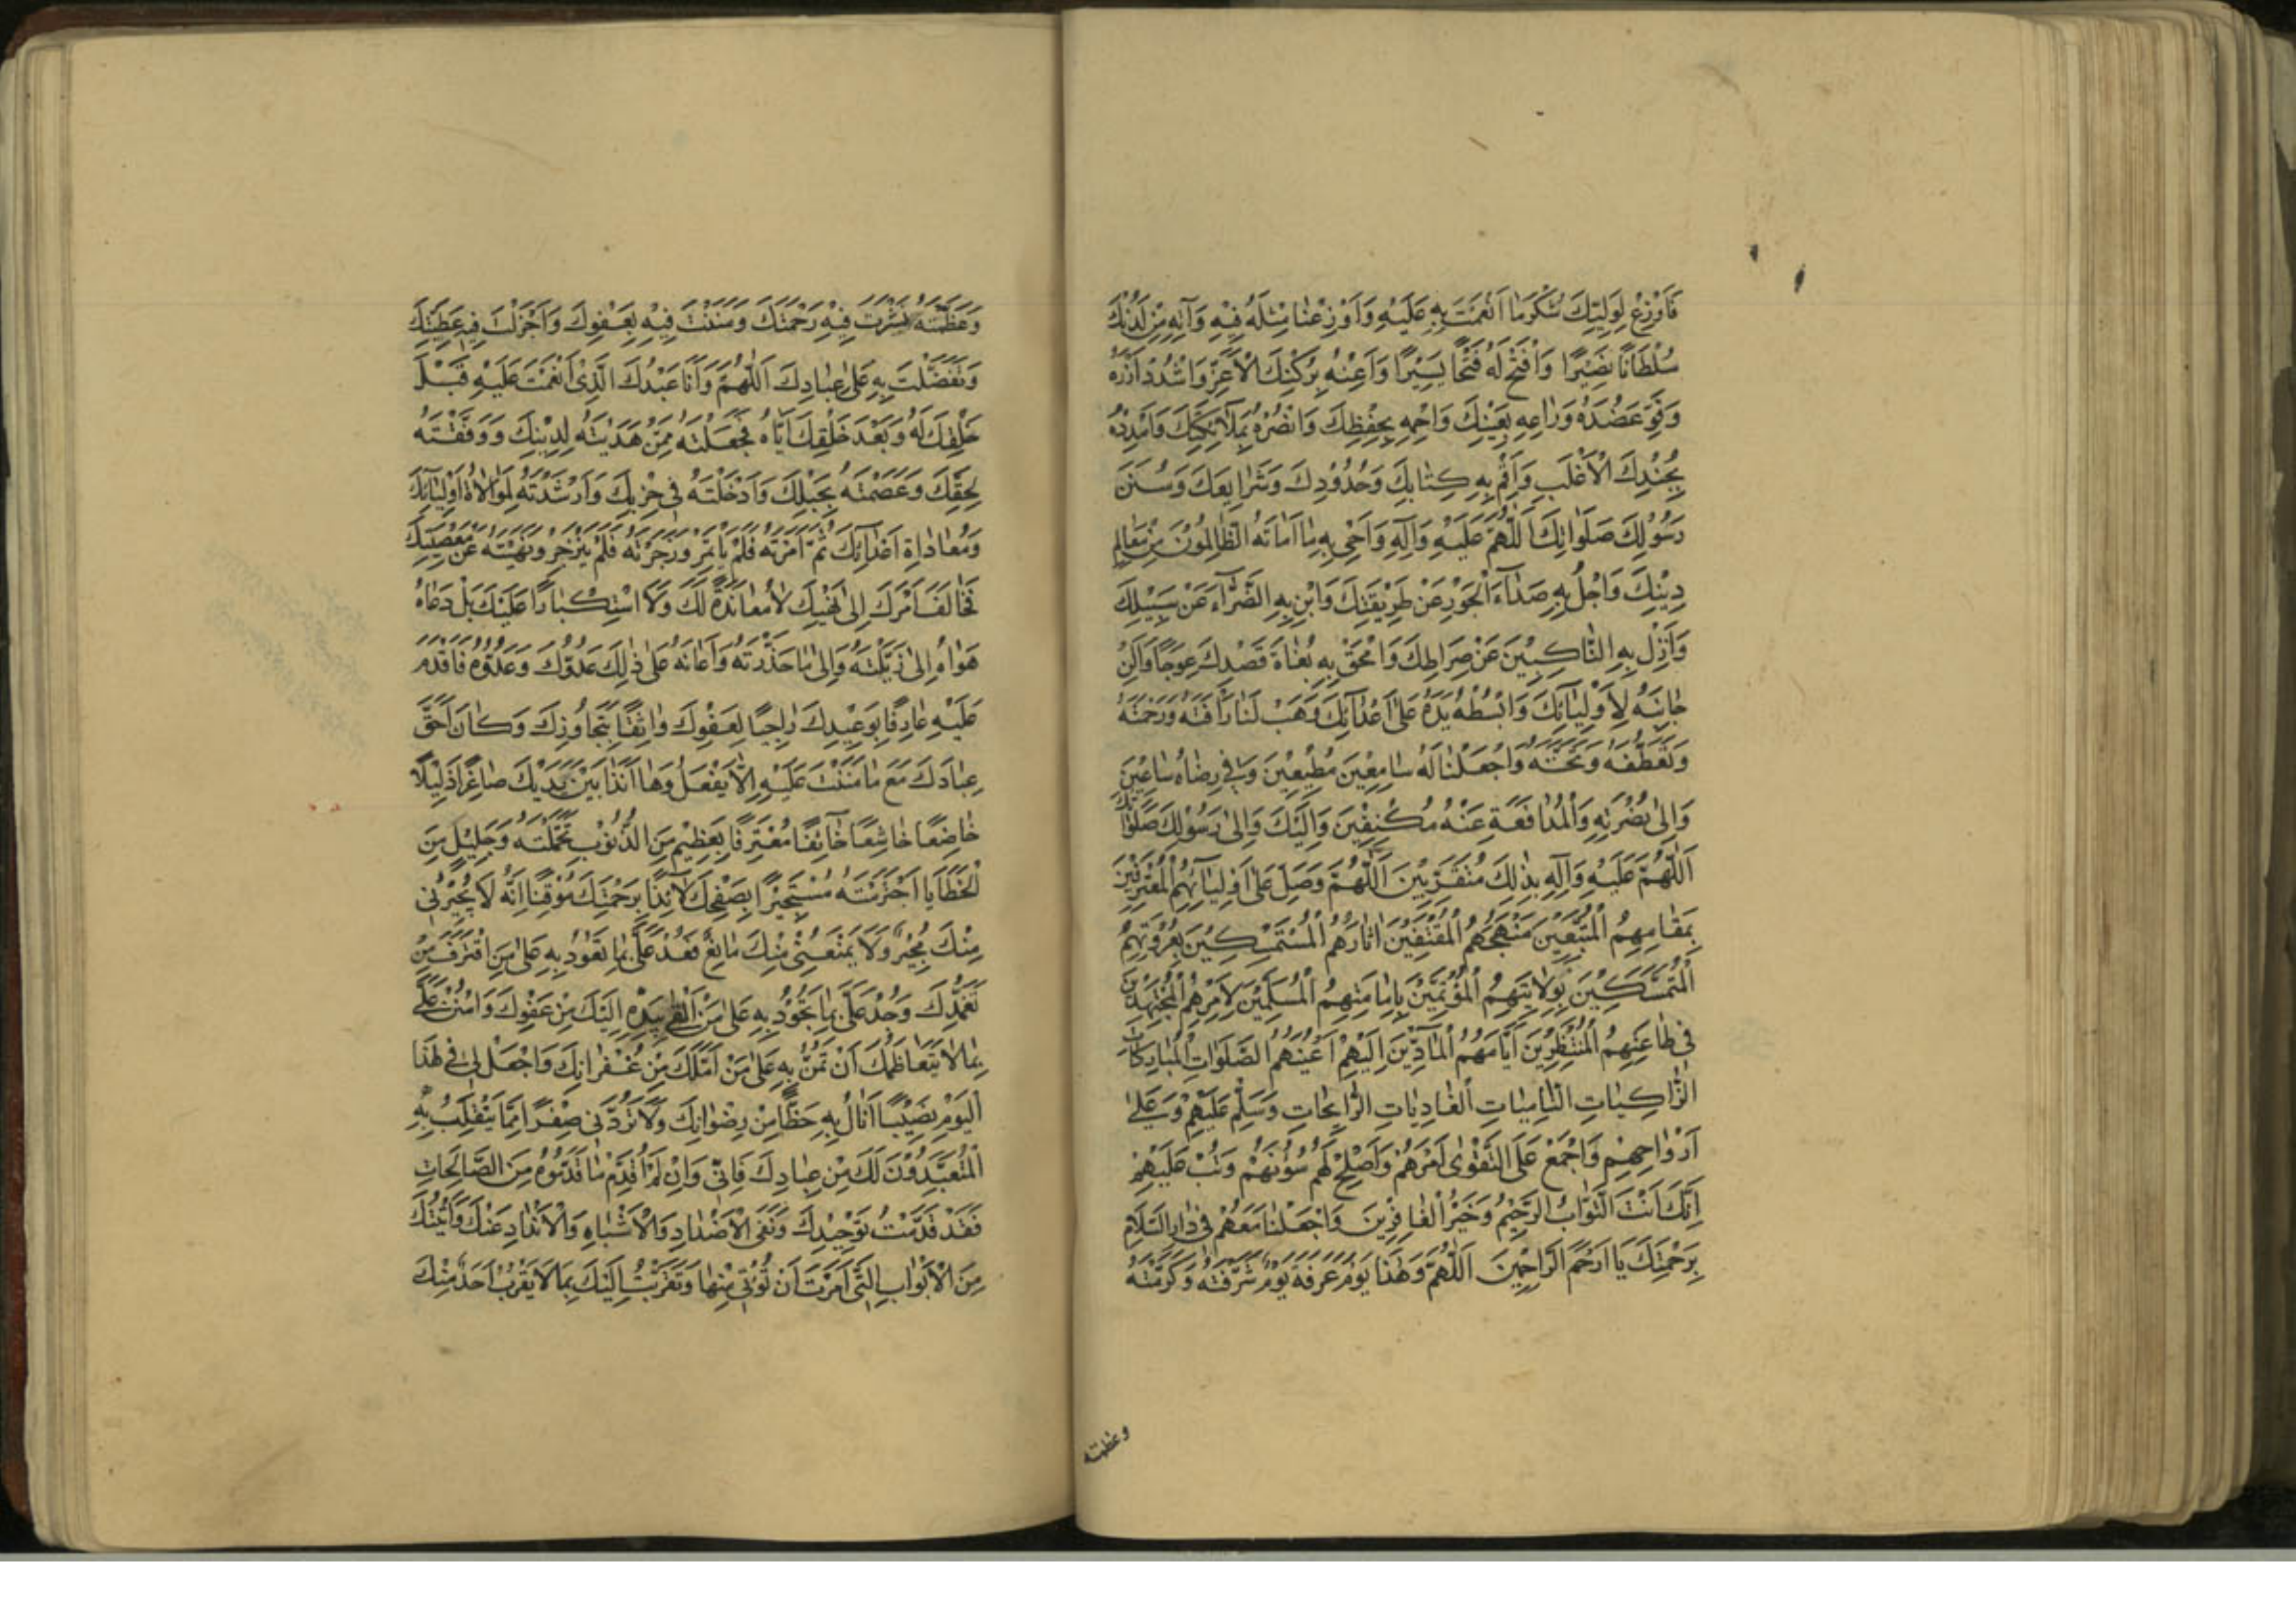 فَاَوْزِعْ لِوَلِيِّكَ شُكْرَ مَا اَنْعَمْتَ بِهِ عَلَيْهِ وَاَوْزِعْنَا مِثْلَهُ فِيْهِ وَآتِهِ مِنْ لَدُنْكَ
سُلْطَانًا نَصِيْرًا وَافْتَحْ لَهُ فَتْحًا يَسِيْرًا وَاَعِنْهُ بِرُكْنِكَ الْاَعَزِّ وَاشْدُدْ اَزْرَهُ
وَقَوِّ عَضُدَهُ وَرَاعِهِ بِعَيْنِكَ وَاحْمِهِ بِحِفْظِكَ وَانْصُرْهُ بِمَلَآئِكَتِكَ وَامْدُدْهُ
بِجُنْدِكَ الْاَغْلَبِ وَاَقِمْ بِهِ كِتَابَكَ وَحُدُوْدَكَ وَشَرَايِعَكَ وَسُنَنَ
رَسُوْلِكَ صَلَوَاتُكَ اَللّٰهُمَّ عَلَيْهِ وَآلِهِ وَاَحْيِ بِهِ مَا اَمَاتَهُ الظَّالِمُوْنَ مِنْ مَعَالِمِ
دِيْنِكَ وَاجْلُ بِهِ صَدَآءَ الْجَوْرِ عَنْ طَرِيْقَتِكَ وَاَبِنْ بِهِ الضَّرَّآءَ عَنْ سَبِيْلِكَ
وَاَزِلْ بِهِ النَّاكِبِيْنَ عَنْ صِرَاطِكَ وَامْحَقْ بِهِ بُغَاةَ قَصْدِكَ عِوَجًا وَاَلِنْ
جَانِبَهُ لِاَوْلِيَآئِكَ وَابْسُطْ يَدَهُ عَلٰى اَعْدَآئِكَ وَهَبْ لَنَا رَاْفَتَهُ وَرَحْمَتَهُ
وَتَعَطُّفَهُ وَتَحَنُّنَهُ وَاجْعَلْنَا لَهُ سَامِعِيْنَ مُطِيْعِيْنَ وَفِيْ رِضَاهُ سَاعِيْنَ
وَاِلٰى نُصْرَتِهِ وَالْمُدَافَعَةِ عَنْهُ مُكْنِفِيْنَ وَاِلَيْكَ وَاِلٰى رَسُوْلِكَ صَلَوَاتُكَ
اَللّٰهُمَّ عَلَيْهِ وَآلِهِ بِذٰلِكَ مُتَقَرِّبِيْنَ اَللّٰهُمَّ وَصَلِّ عَلٰى اَوْلِيَآئِهِمُ الْمُعْتَرِفِيْنَ
بِمَقَامِهِمُ الْمُتَّبِعِيْنَ مَنْهَجَهُمُ الْمُقْتَفِيْنَ اٰثَارَهُمُ الْمُسْتَمْسِكِيْنَ بِعُرْوَتِهِمُ
الْمُتَمَسِّكِيْنَ بِوِلَايَتِهِمُ الْمُؤْتَمِّيْنَ بِاِمَامَتِهِمُ الْمُسَلِّمِيْنَ لِاَمْرِهِمُ الْمُجْتَهِدِيْنَ
فِيْ طَاعَتِهِمُ الْمُنْتَظِرِيْنَ اَيَّامَهُمُ الْمَآدِّيْنَ اِلَيْهِمْ اَعْيُنَهُمْ الصَّلَوَاتِ الْمُبَارَكَاتِ
الزَّاكِيَاتِ النَّامِيَاتِ الْغَادِيَاتِ الرَّايِحَاتِ وَسَلِّمْ عَلَيْهِمْ وَعَلٰى
اَرْوَاحِهِمْ وَاجْمَعْ عَلَى التَّقْوٰى اَمْرَهُمْ وَاَصْلِحْ لَهُمْ شُؤُنَهُمْ وَتُبْ عَلَيْهِمْ
اِنَّكَ اَنْتَ التَّوَّابُ الرَّحِيْمُ وَخَيْرُ الْغَافِرِيْنَ وَاجْعَلْنَا مَعَهُمْ فِيْ دَارِ السَّلَامِ
بِرَحْمَتِكَ يَا اَرْحَمَ الرَّاحِمِيْنَ اَللّٰهُمَّ وَهٰذَا يَوْمُ عَرَفَةَ يَوْمٌ شَرَّفْتَهُ وَكَرَّمْتَهُ
وعظمته
وَعَظَّمْتَهُ نَشَرْتَ فِيْهِ رَحْمَتَكَ وَمَنَنْتَ فِيْهِ بِعَفْوِكَ وَاَجْزَلْتَ فِيْهِ عَطِيَّتَكَ
وَتَفَضَّلْتَ بِهِ عَلٰى عِبَادِكَ اَللّٰهُمَّ وَاَنَا عَبْدُكَ الَّذِيْ اَنْعَمْتَ عَلَيْهِ قَبْلَ
خَلْقِكَ لَهُ وَبَعْدَ خَلْقِكَ اِيَّاهُ فَجَعَلْتَهُ مِمَّنْ هَدَيْتَهُ لِدِيْنِكَ وَوَفَّقْتَهُ
لِحَقِّكَ وَعَصَمْتَهُ بِحَبْلِكَ وَاَدْخَلْتَهُ فِيْ حِزْبِكَ وَاَرْشَدْتَهُ لِمُوَالَاةِ اَوْلِيَآئِكَ
وَمُعَادَاةِ اَعْدَآئِكَ ثُمَّ اَمَرْتَهُ فَلَمْ يَاْتَمِرْ وَزَجَرْتَهُ فَلَمْ يَنْزَجِرْ وَنَهَيْتَهُ عَنْ مَعْصِيَتِكَ
فَخَالَفَ اَمْرَكَ اِلٰى نَهْيِكَ لَا مُعَانَدَةً لَكَ وَلَا اسْتِكْبَارًا عَلَيْكَ بَلْ دَعَاهُ
هَوَاهُ اِلٰى مَا زَيَّلْتَهُ وَاِلٰى مَا حَذَّرْتَهُ وَاَعَانَهُ عَلٰى ذٰلِكَ عَدُوُّكَ وَعَدُوُّهُ فَاَقْدَمَ
عَلَيْهِ عَارِفًا بِوَعِيْدِكَ رَاجِيًا لِعَفْوِكَ وَاثِقًا بِتَجَاوُزِكَ وَكَانَ اَحَقَّ
عِبَادِكَ مَعَ مَا مَنَنْتَ عَلَيْهِ اَلَّا يَفْعَلَ وَهَا اَنَذَا بَيْنَ يَدَيْكَ صَاغِرًا ذَلِيْلًا
خَاضِعًا خَاشِعًا خَآئِفًا مُعْتَرِفًا بِعَظِيْمٍ مِنَ الذُّنُوْبِ تَحَمَّلْتُهُ وَجَلِيْلٍ مِنَ
الْخَطَايَا اجْتَرَمْتُهُ مُسْتَجِيْرًا بِصَفْحِكَ لَآئِذًا بِرَحْمَتِكَ مُوْقِنًا اَنَّهُ لَا يُجِيْرُنِيْ
مِنْكَ مُجِيْرٌ وَلَا يَمْنَعُنِيْ مِنْكَ مَانِعٌ فَعُدْ عَلَيَّ بِمَا تَعُوْدُ بِهِ عَلٰى مَنِ اقْتَرَفَ مِنْ
تَغَمُّدِكَ وَجُدْ عَلَيَّ بِمَا تَجُوْدُ بِهِ عَلٰى مَنْ اَلْقٰى بِيَدِهِ اِلَيْكَ مِنْ عَفْوِكَ وَامْنُنْ عَلَيَّ
بِمَا لَا يَتَعَاظَمُكَ اَنْ تَمُنَّ بِهِ عَلٰى مَنْ اَمَّلَكَ مِنْ غُفْرَانِكَ وَاجْعَلْ لِيْ فِيْ هٰذَا
الْيَوْمِ نَصِيْبًا اَنَالُ بِهِ حَظًّا مِنْ رِضْوَانِكَ وَلَا تَرُدَّنِيْ صِفْرًا مِمَّا يَنْقَلِبُ بِهِ
الْمُتَعَبِّدُوْنَ لَكَ مِنْ عِبَادِكَ فَاِنِّيْ وَاِنْ لَمْ اُقَدِّمْ مَا قَدَّمُوْهُ مِنَ الصَّالِحَاتِ
فَقَدْ قَدَّمْتُ تَوْحِيْدَكَ وَنَفْيَ الْاَضْدَادِ وَالْاَشْبَاهِ وَالْاَنْدَادِ عَنْكَ وَاَتَيْتُكَ
مِنَ الْاَبْوَابِ الَّتِيْ اَمَرْتَ اَنْ تُؤْتٰى مِنْهَا وَتَقَرَّبْتُ اِلَيْكَ بِمَا لَا يَقْرُبُ اَحَدٌ مِنْكَ